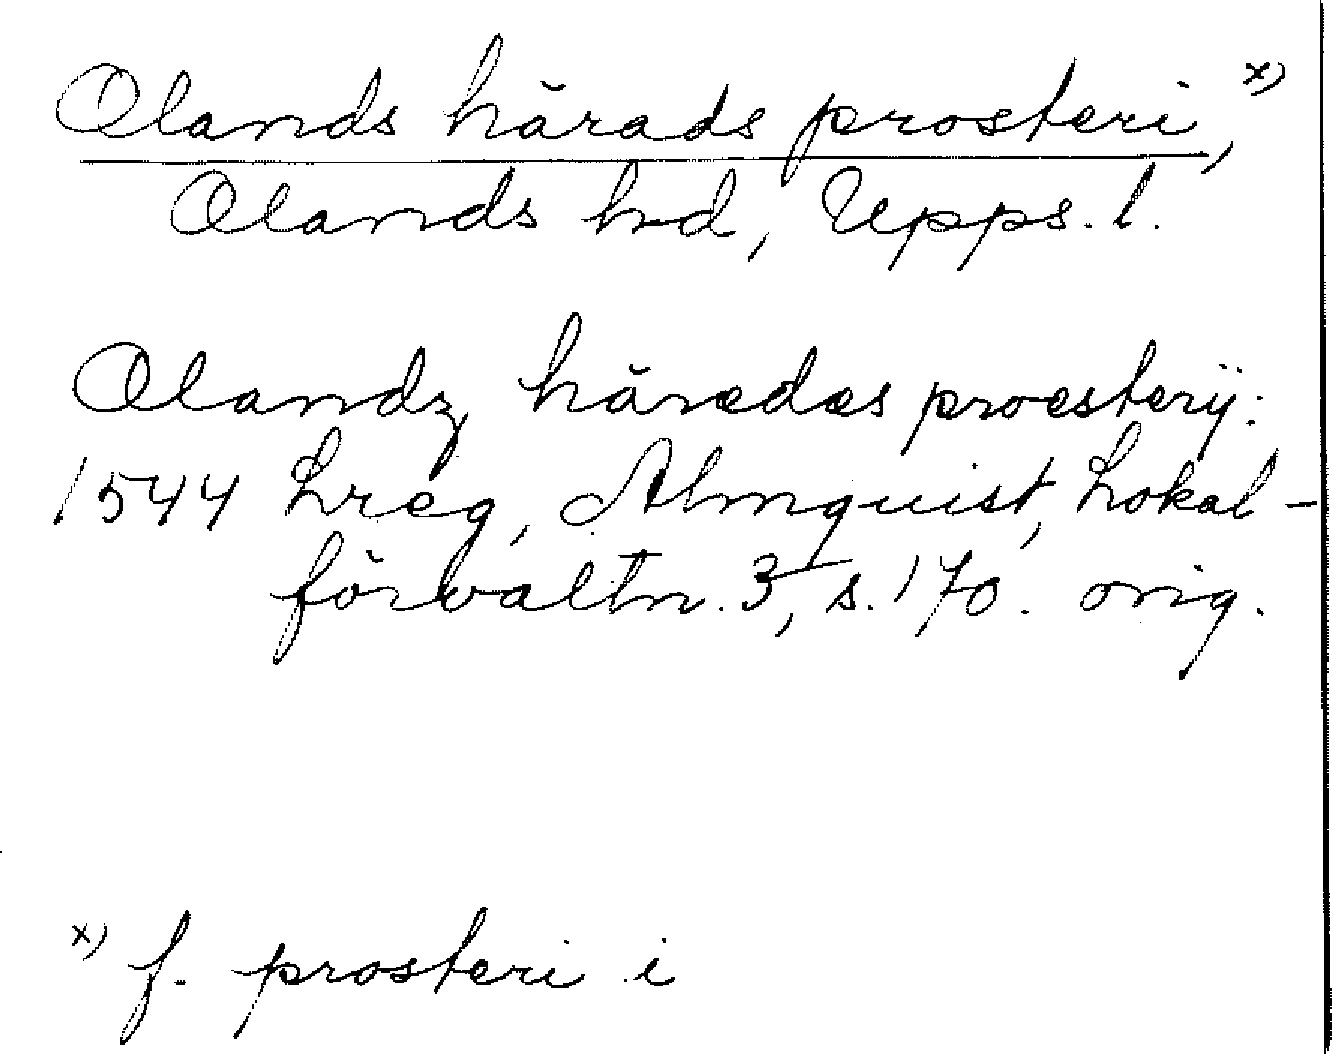 Olands härads prosteri, x)
Olands hd, Upps. l.
Olandz härædæs proesterij:
1544 Lreg, Almquist, Lokal-
förvaltn. 3, s. 170. orig.
x) f. prosteri i